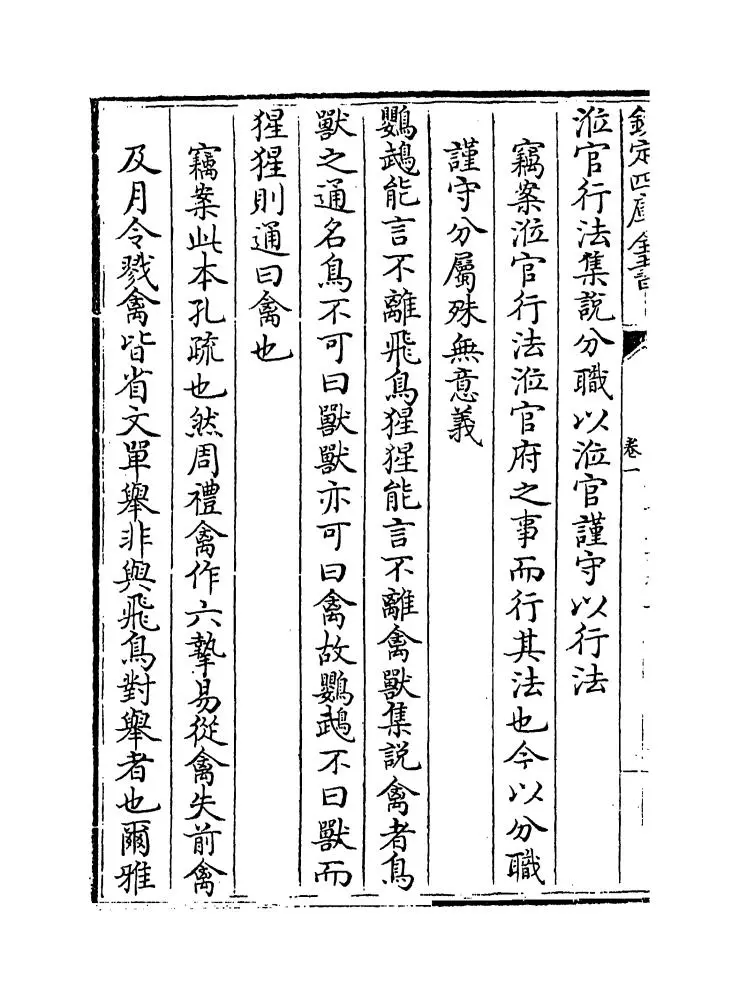 欽定四庫全書
卷一
涖官行法集説分職以涖官謹守以行法
竊案涖官行法涖官府之事而行其法也今以分職
謹守分屬殊無意義
鸚鵡能言不離飛鳥猩猩能言不離禽獸集説禽者鳥
獸之通名鳥不可曰獸獸亦可曰禽故鸚鵡不曰獸而
猩猩則通曰禽也
竊案此本孔疏也然周禮禽作六摯易從禽失前禽
及月令戮禽皆省文單舉非與飛鳥對舉者也爾雅